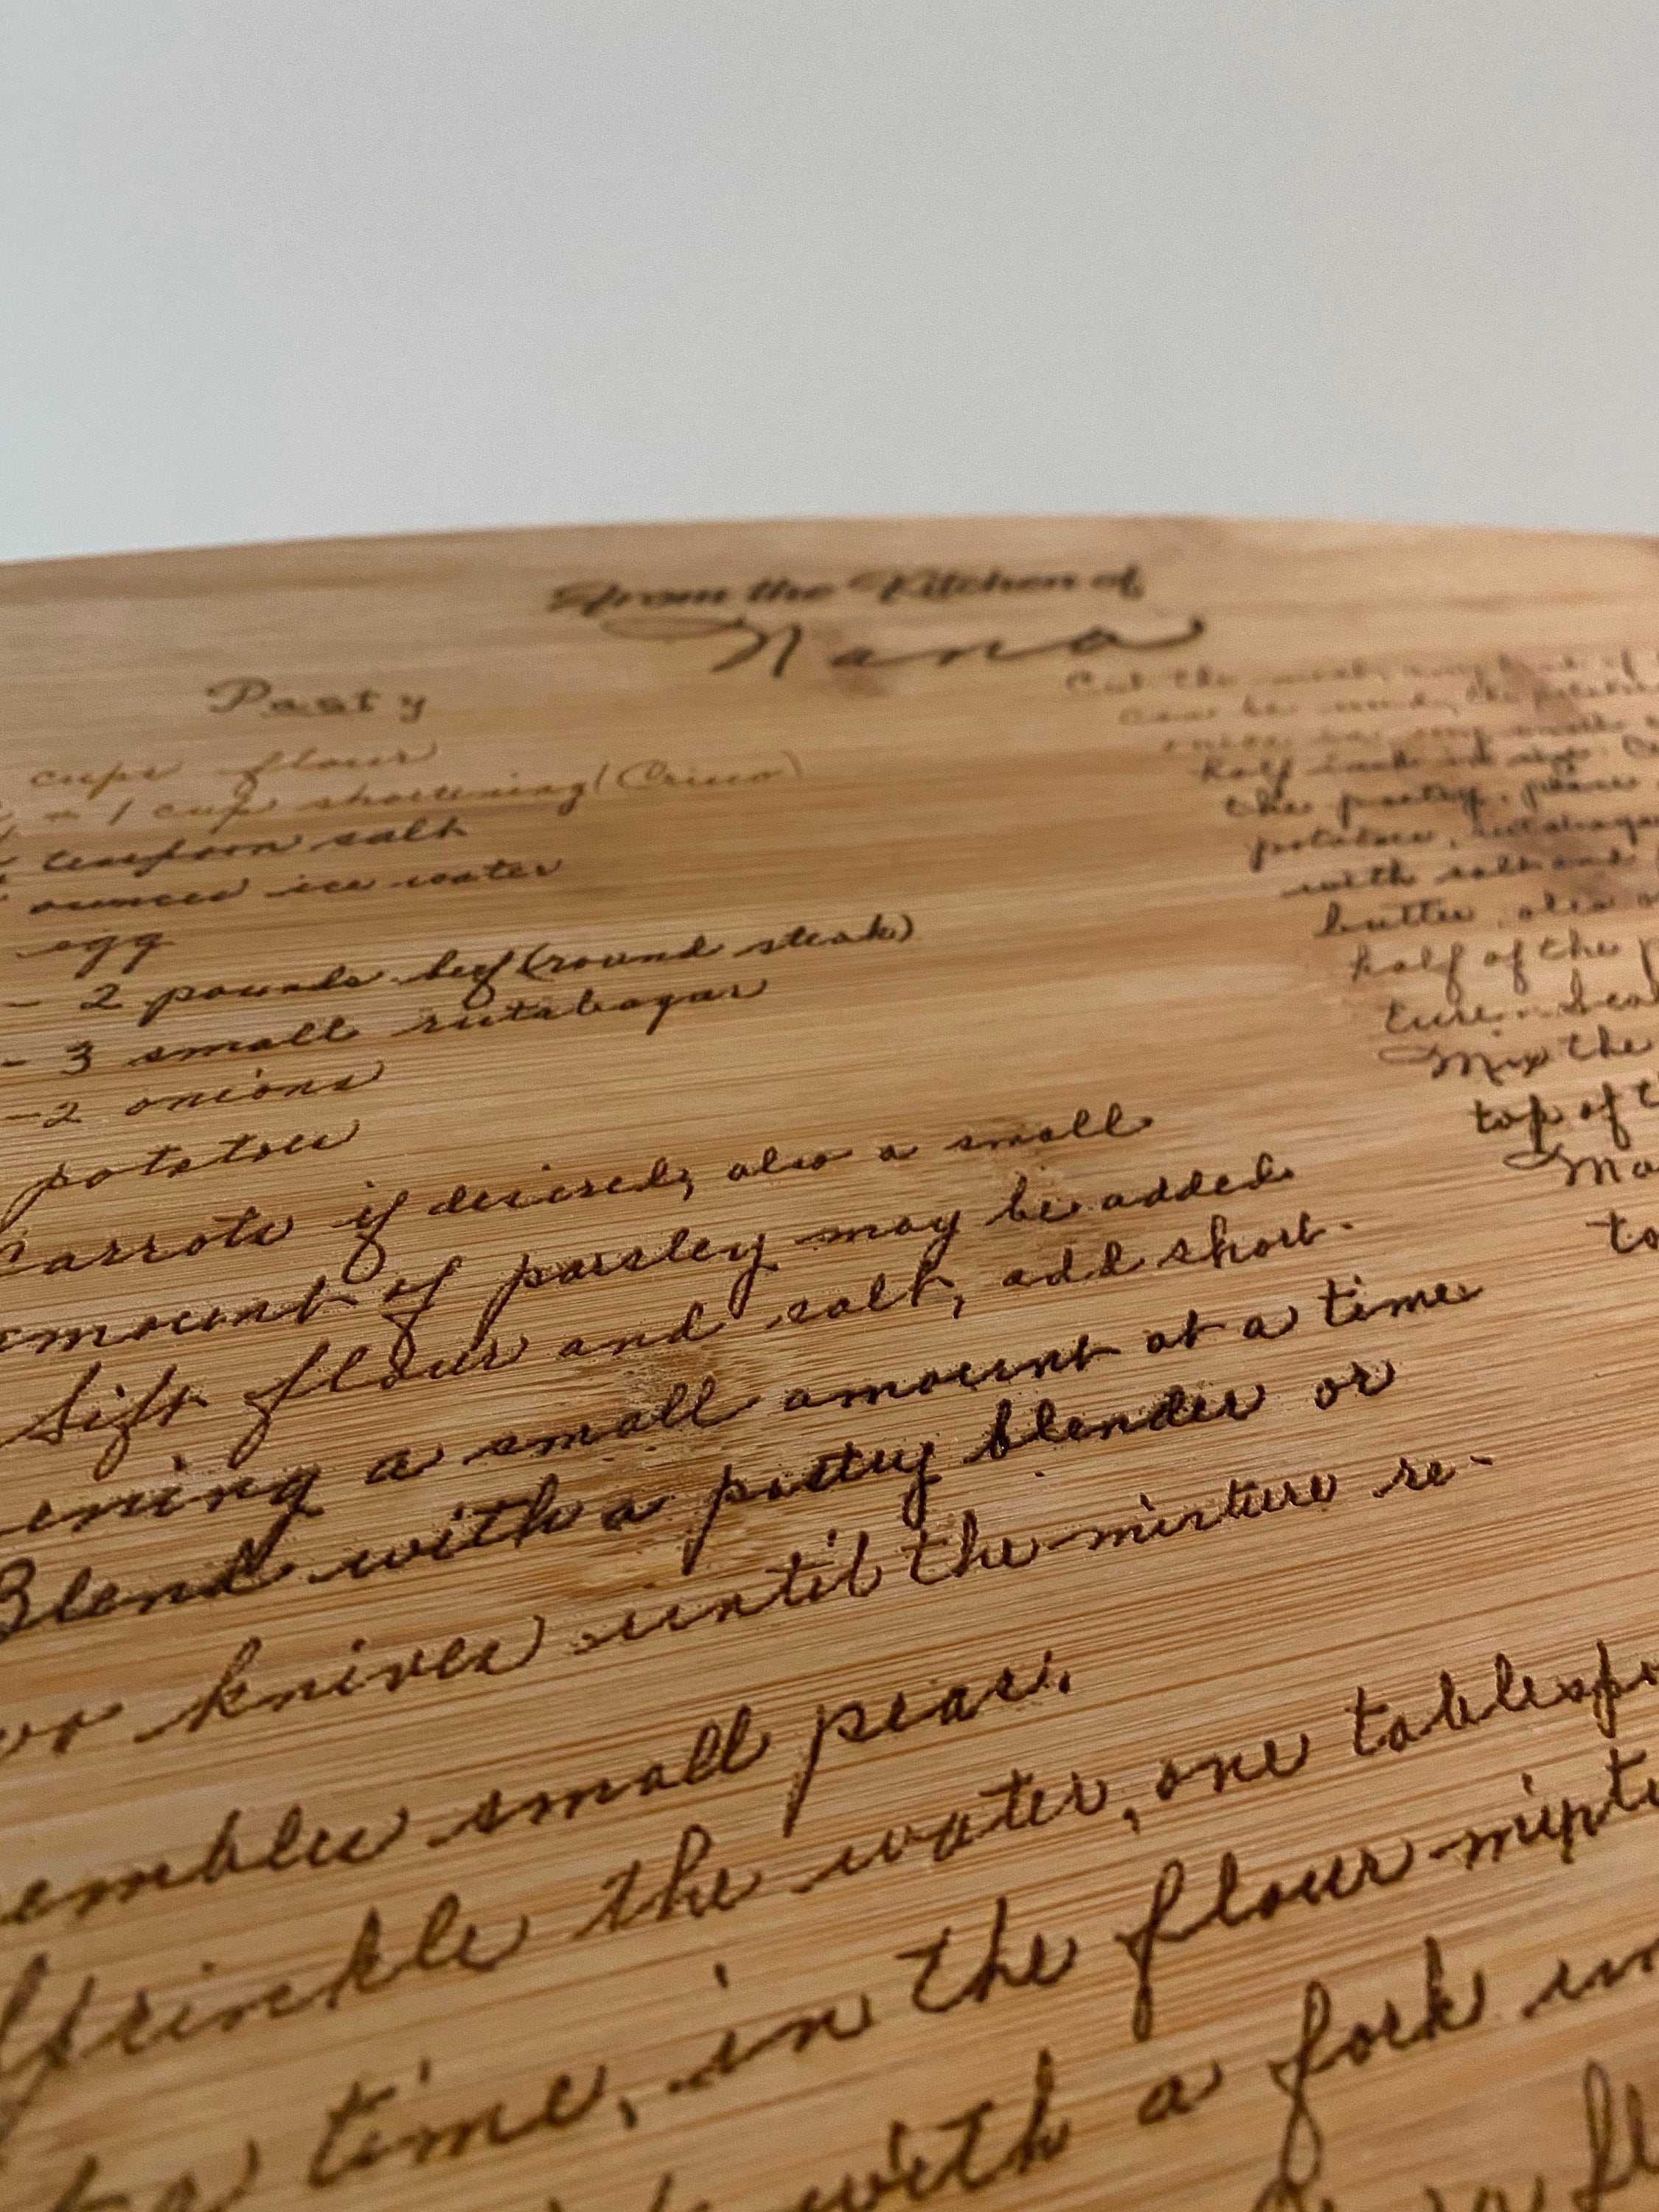 From the Kitchen of
Nana
Pasty
cups flour
1 cup shortening (Crisco)
teaspoon salt
ounces ice water
egg
- 2 pounds beef (round steak)
- 3 small rutabagas
-2 onions
potatoes
Carrots if desired, also a small
amount of parsley may be added
Sift flour and salt, add short-
ening a small amount at a time
Blend with a pastry blender or
knives until the mixture re-
sembles small peas.
Sprinkle the water, one tablespo
time, in the flour mixtu
with a fork un
Cut the
can be used, the
half inch in size.
the pastry, place
potatoes, rutabaga
with salt and
butter, also
half of the
ture.
Mix the
top of t